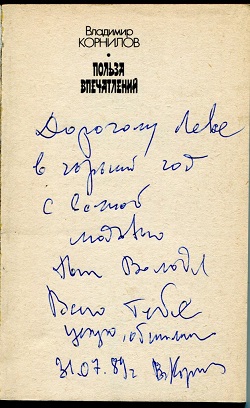 Владимир
КОРНИЛОВ
•
ПОЛЬЗА
ВПЕЧАТЛЕНИЙ
Дорогому Леве
в горький год
с Самой
любовью
Твой Володя
Всего Тебе
целую, обнимаю
31.07.89 г В.Корнил